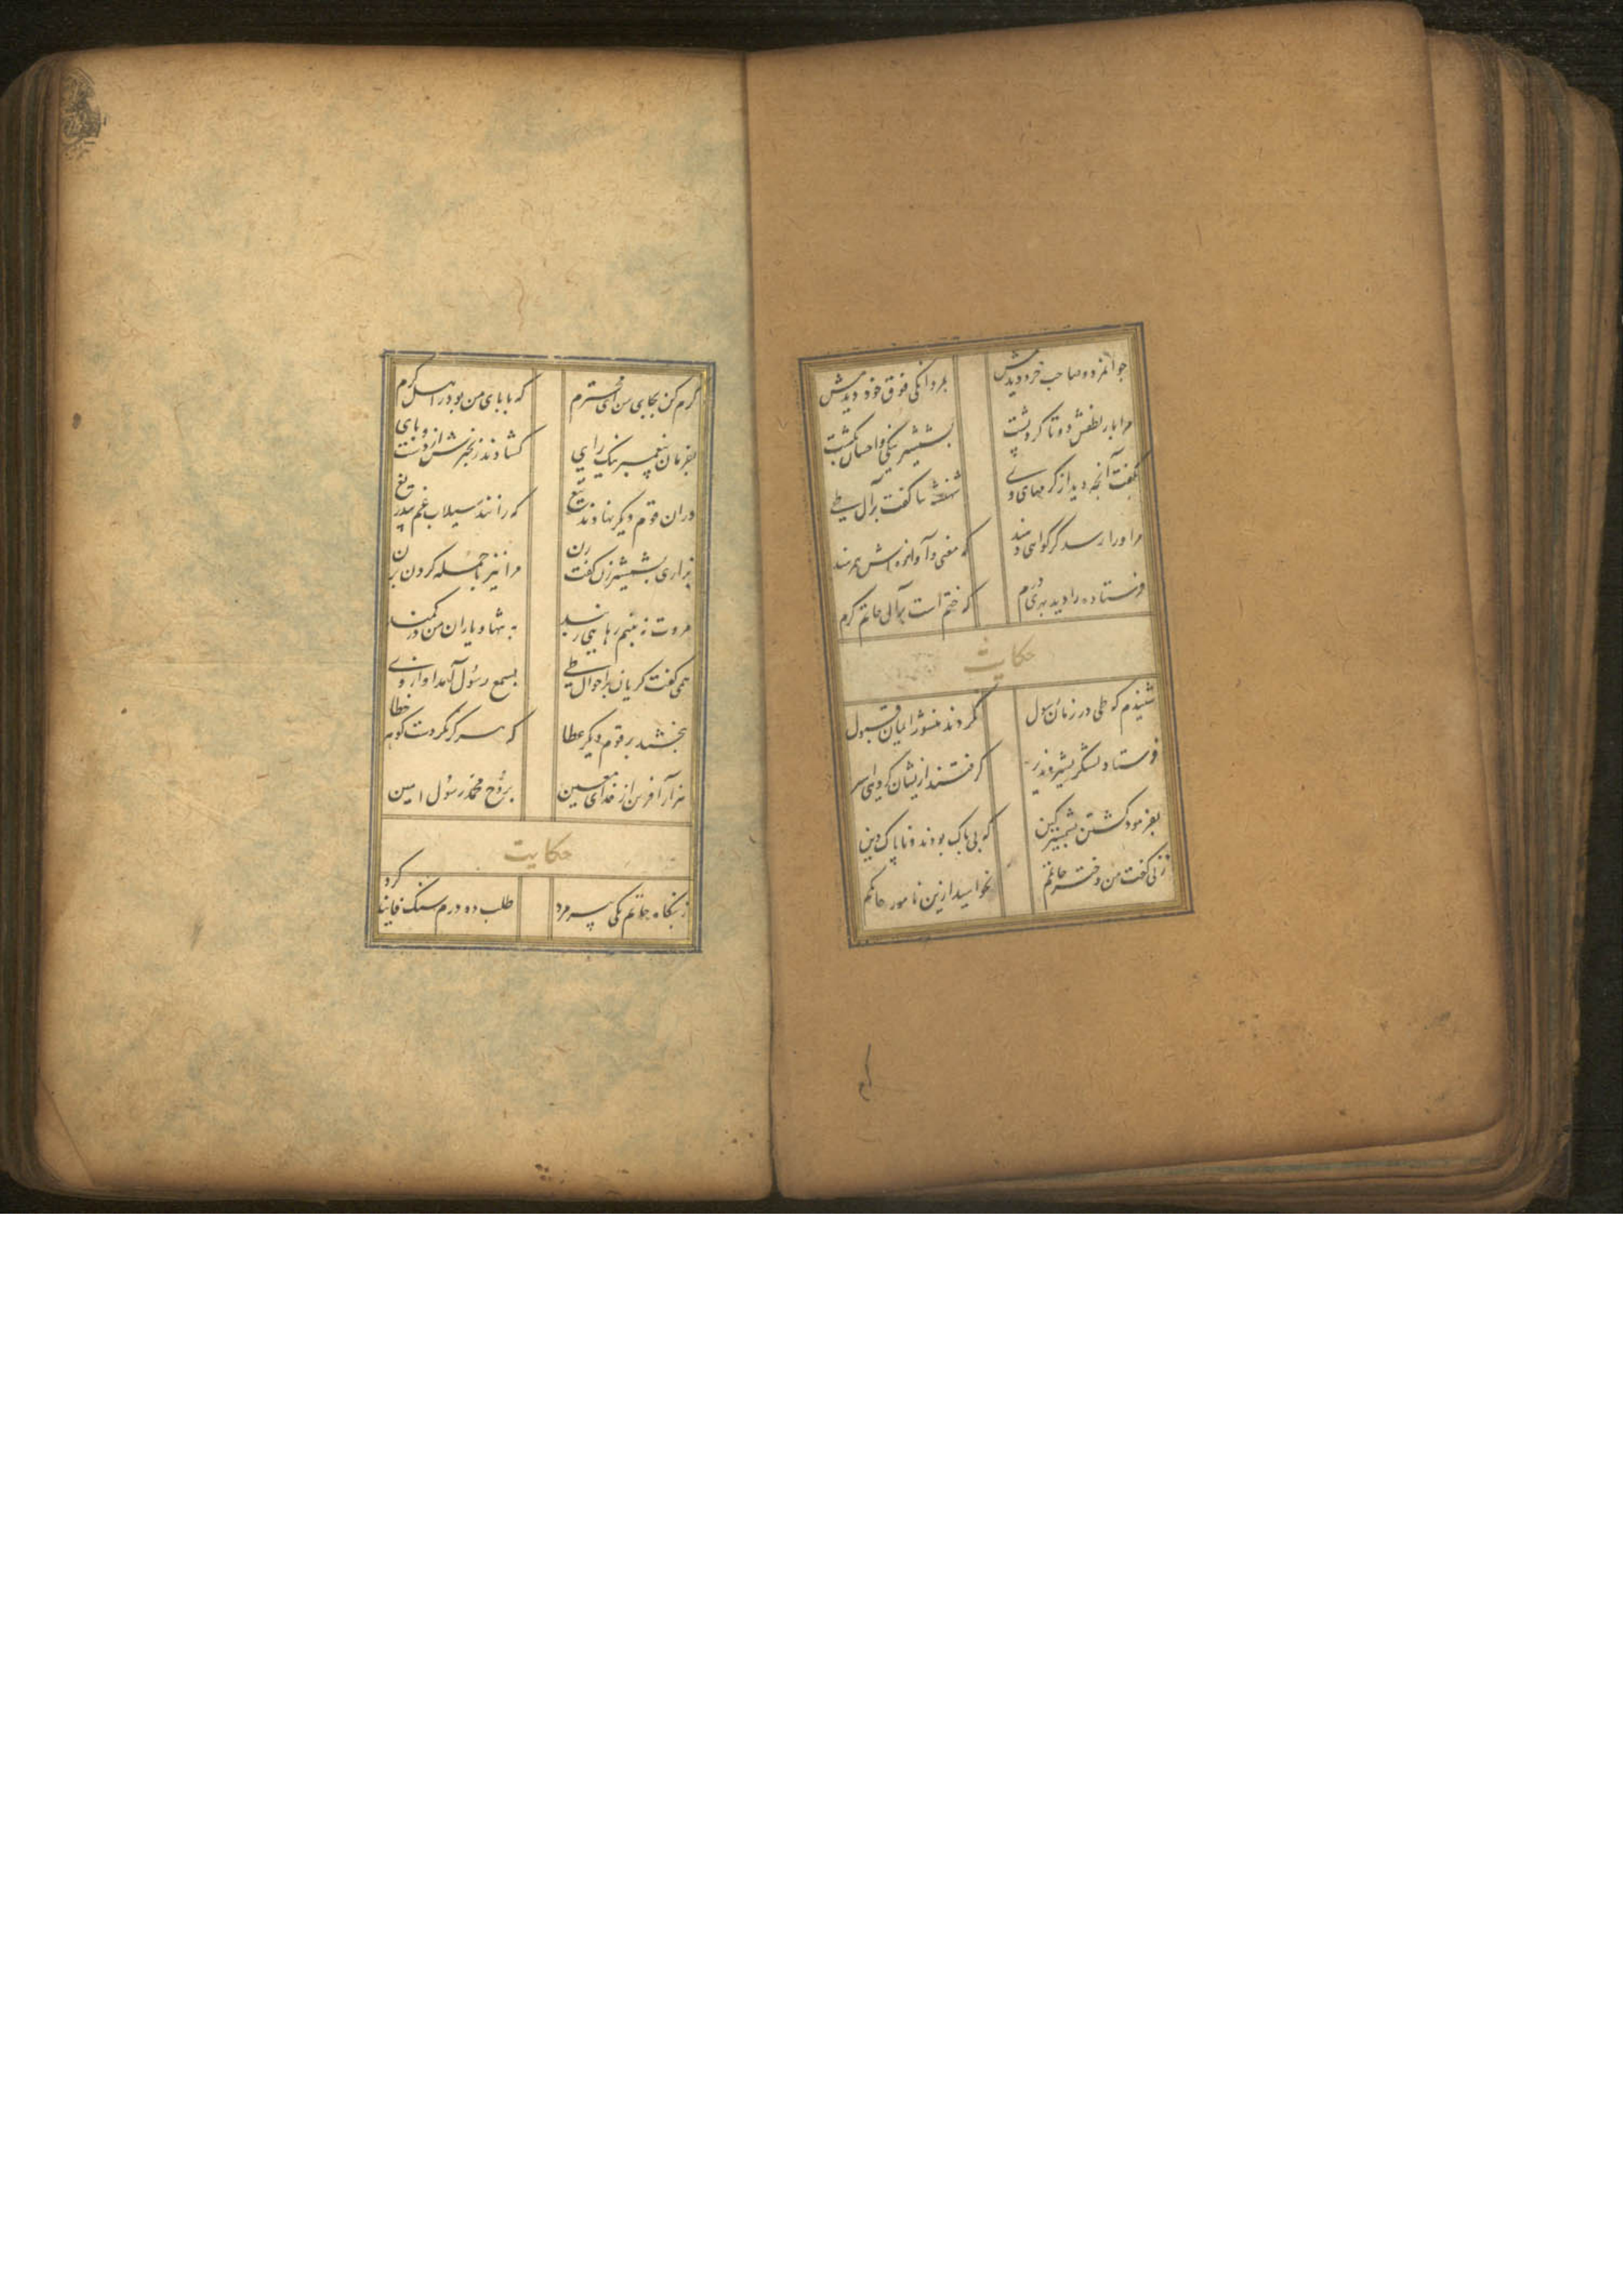 جوانمرد و صاحب خرد دیدمش بمردانکی فوق خود دیدمش
مرا بار لطفش دو تا کرد پشت بشمشیر نیکی و احسان بکشت
بگفت آنچه دید از کرمهای وی شهنشه ثنا گفت بر آل طی
مر او را رسد گر گواهی دهند که معنی و آوازه اش همرهند
فرستاده را دید بهری درم که ختم است بر آل حاتم کرم
حکایت
شنیدم که طی در زمان رسول نکردند منشور ایمان قبول
فرستاد لشکر بشیر و نذیر گرفتند ازیشان گروهی اسیر
بفرمود کشتن بشمشیر کین که بی باک بودند و ناپاک دین
زنی گفت من دختر حاتمم بخواهید ازین نامور حاکمم
کرم کن بجای من ای محترم که بابای من بود از اهل کرم
بفرمان پیغمبر نیک رای کشادند زنجیرش از دست و پای
دران قوم دیگر نهادند تیغ که رانند سیلاب غم بیدریغ
بزاری بشمشیر زن گفت زن مرا نیز با جمله گردن بزن
مروت نه بینم رهایی ز بند به تنها و یاران من در کمند
همی گفت گریان بر احوال طی بسمع رسول آمد آواز وی
ببخشید بر قوم دیگر عطا که هرگز نکردت گوهر خطا
هزار آفرین از خدای معین بروح محمد رسول امین
حکایت
ز بنگاه حاتم یکی پیر مرد طلب ده درم سنگ فانید کرد